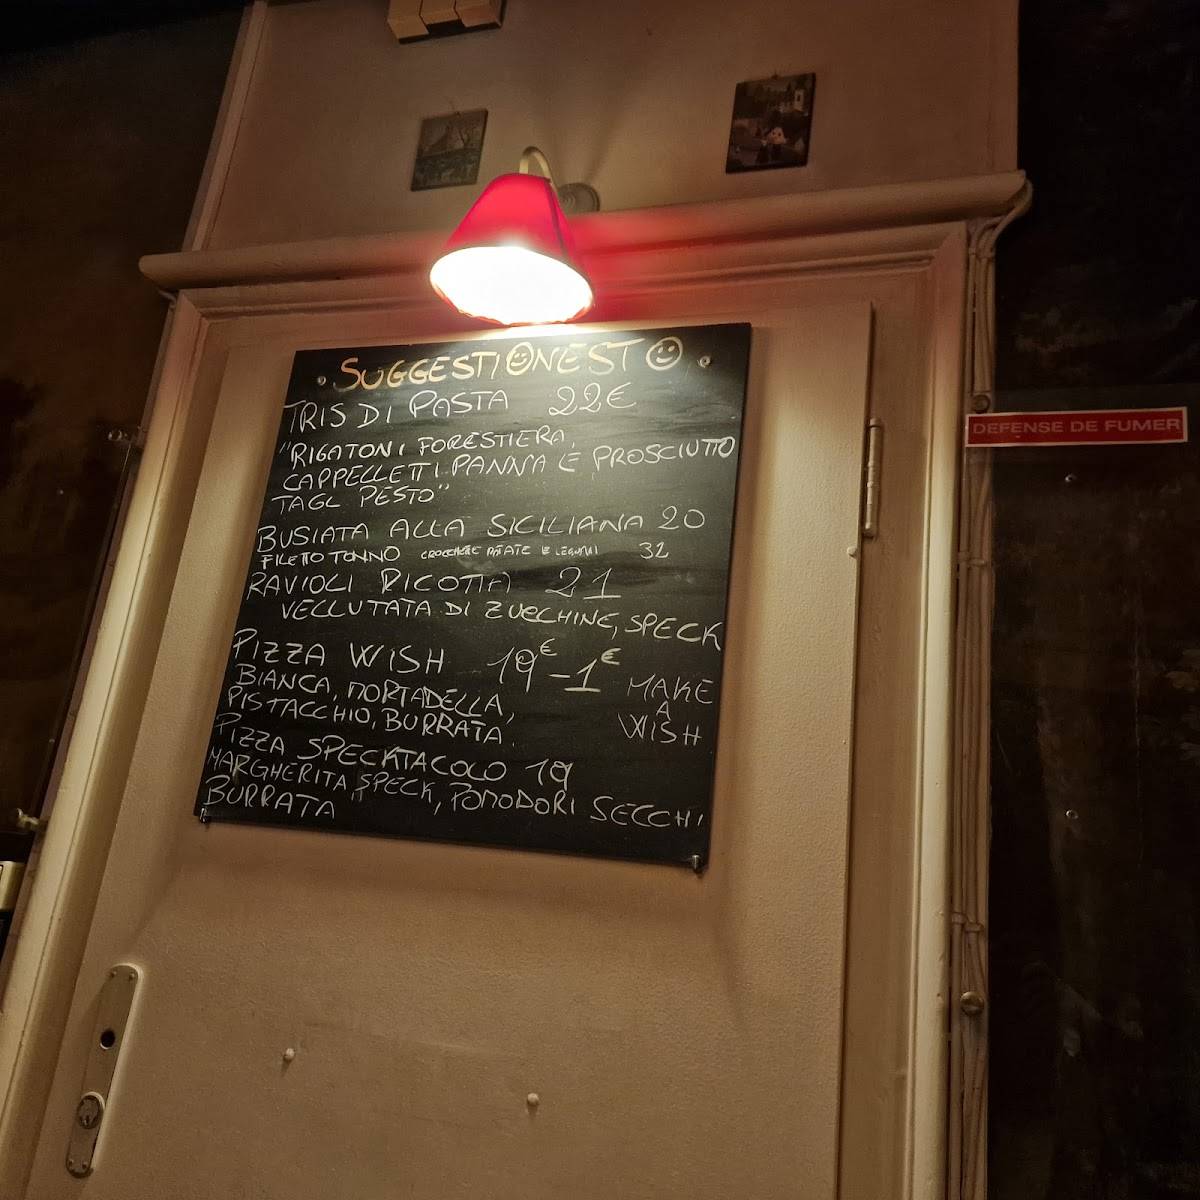 SUGGESTIONESTO
TRIS DI PASTA 22€
"RIGATONI FORESTIERA,
CAPPELLETTI PANNA E PROSCIUTTO
TAGL PESTO"
BUSIATA ALLA SICILIANA 20
FILETTO TONNO CROCCHETTE PATATE E LEGUMI 32
RAVIOLI RICOTTA 21
VELLUTATA DI ZUCCHINE, SPECK
PIZZA WISH 19€ -1€
BIANCA, MORTADELLA,
PISTACCHIO, BURRATA.
MAKE
A
WISH
PIZZA SPECKTACOLO 19
MARGHERITA, SPECK, POMODORI SECCHI
BURRATA
DEFENSE DE FUMER